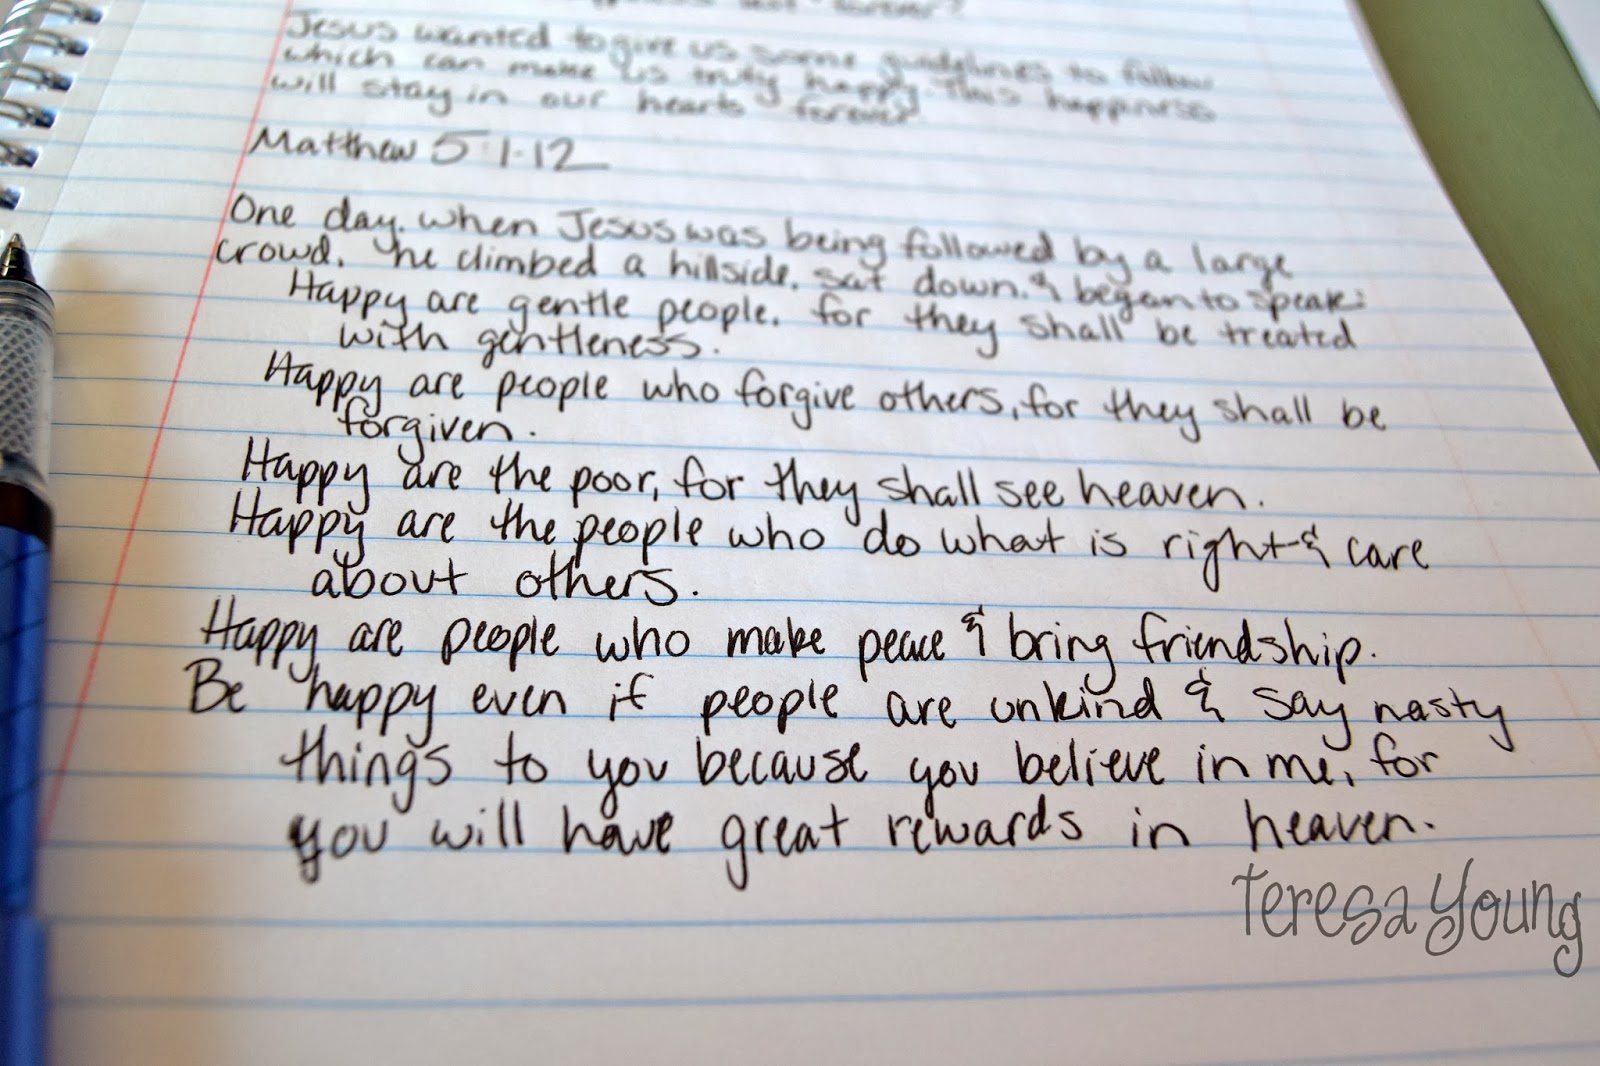 forever?
Jesus wanted to give us some guidelines to follow
which can make us truly happy. This happiness
will stay in our hearts forever.
Matthew 5:1-12
One day. when Jesus was being followed by a large
crowd. he climbed a hillside. sat down. & began to speak:
Happy are gentle people. for they shall be treated
with gentleness.
Happy are people who forgive others, for they shall be
forgiven.
Happy are the poor, for they shall see heaven.
Happy are the people who do what is right & care
about others.
Happy are people who make peace & bring friendship.
Be happy even if people are unkind & say nasty
things to you because you believe in me, for
you will have great rewards in heaven.
Teresa Young